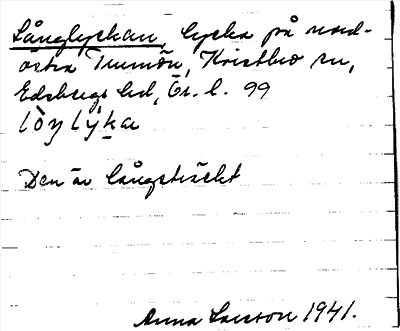 Långlyckan, lycka på nord-
östra Timmön, Kristbio sn,
Edsbergs hd, Ör. l. 99
lòŋ lỳka
Den är långsträckt
Anna Larsson 1941.